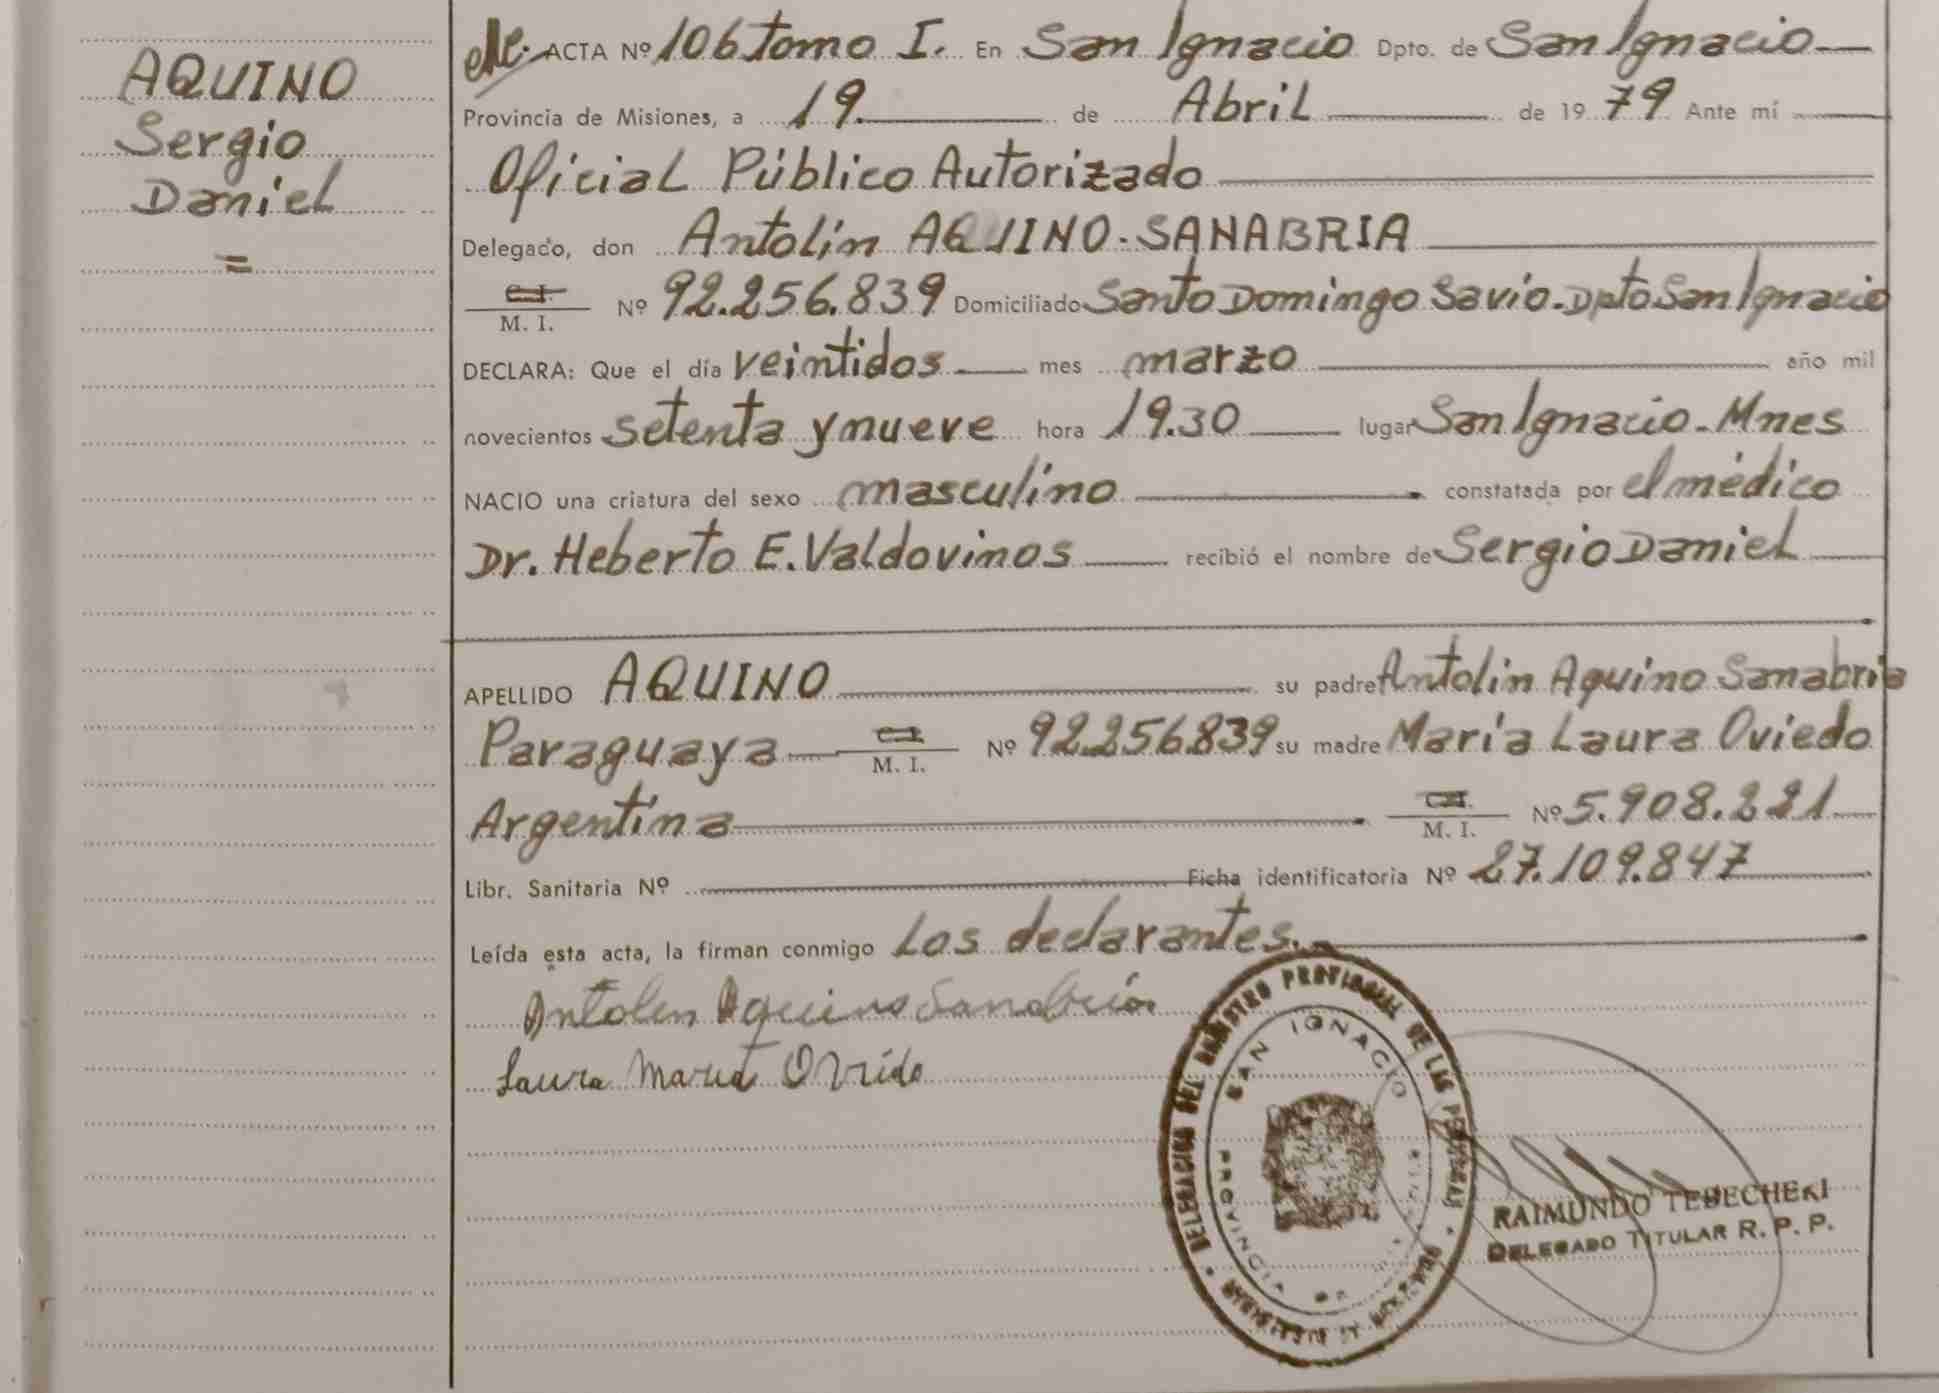 AQUINO
Sergio
Daniel
=
ACTA Nº 106 tomo I. En San Ignacio Dpto. de San Ignacio
Provincia de Misiones, a 19 de Abril de 1979 Ante mí
Oficial Público Autorizado
Delegado, don Antolín AQUINO-SANABRIA
C.I.
M. I. Nº 92.256.839 Domiciliado Santo Domingo Savio-Dpto San Ignacio
DECLARA: Que el día veintidos mes marzo año mil
novecientos setenta y nueve hora 19.30 lugar San Ignacio-Mnes
NACIO una criatura del sexo masculino constatada por el médico
Dr. Heberto E. Valdovinos recibió el nombre de Sergio Daniel
APELLIDO AQUINO su padre Antolín Aquino Sanabria
Paraguaya C.I. M. I. Nº 92.256.839 su madre María Laura Oviedo
Argentina C.I. M. I. Nº 5.908.221
Libr. Sanitaria Nº Ficha identificatoria Nº 27.109.847
Leída esta acta, la firman conmigo Los declarantes.
Antolin Aquino Sanabria
Laura Maria Oviedo
DELEGACION DEL REGISTRO PROVINCIAL DE LAS PERSONAS
SAN IGNACIO
PROVINCIA DE
RAIMUNDO TEBECHEKI
DELEGADO TITULAR R. P. P.